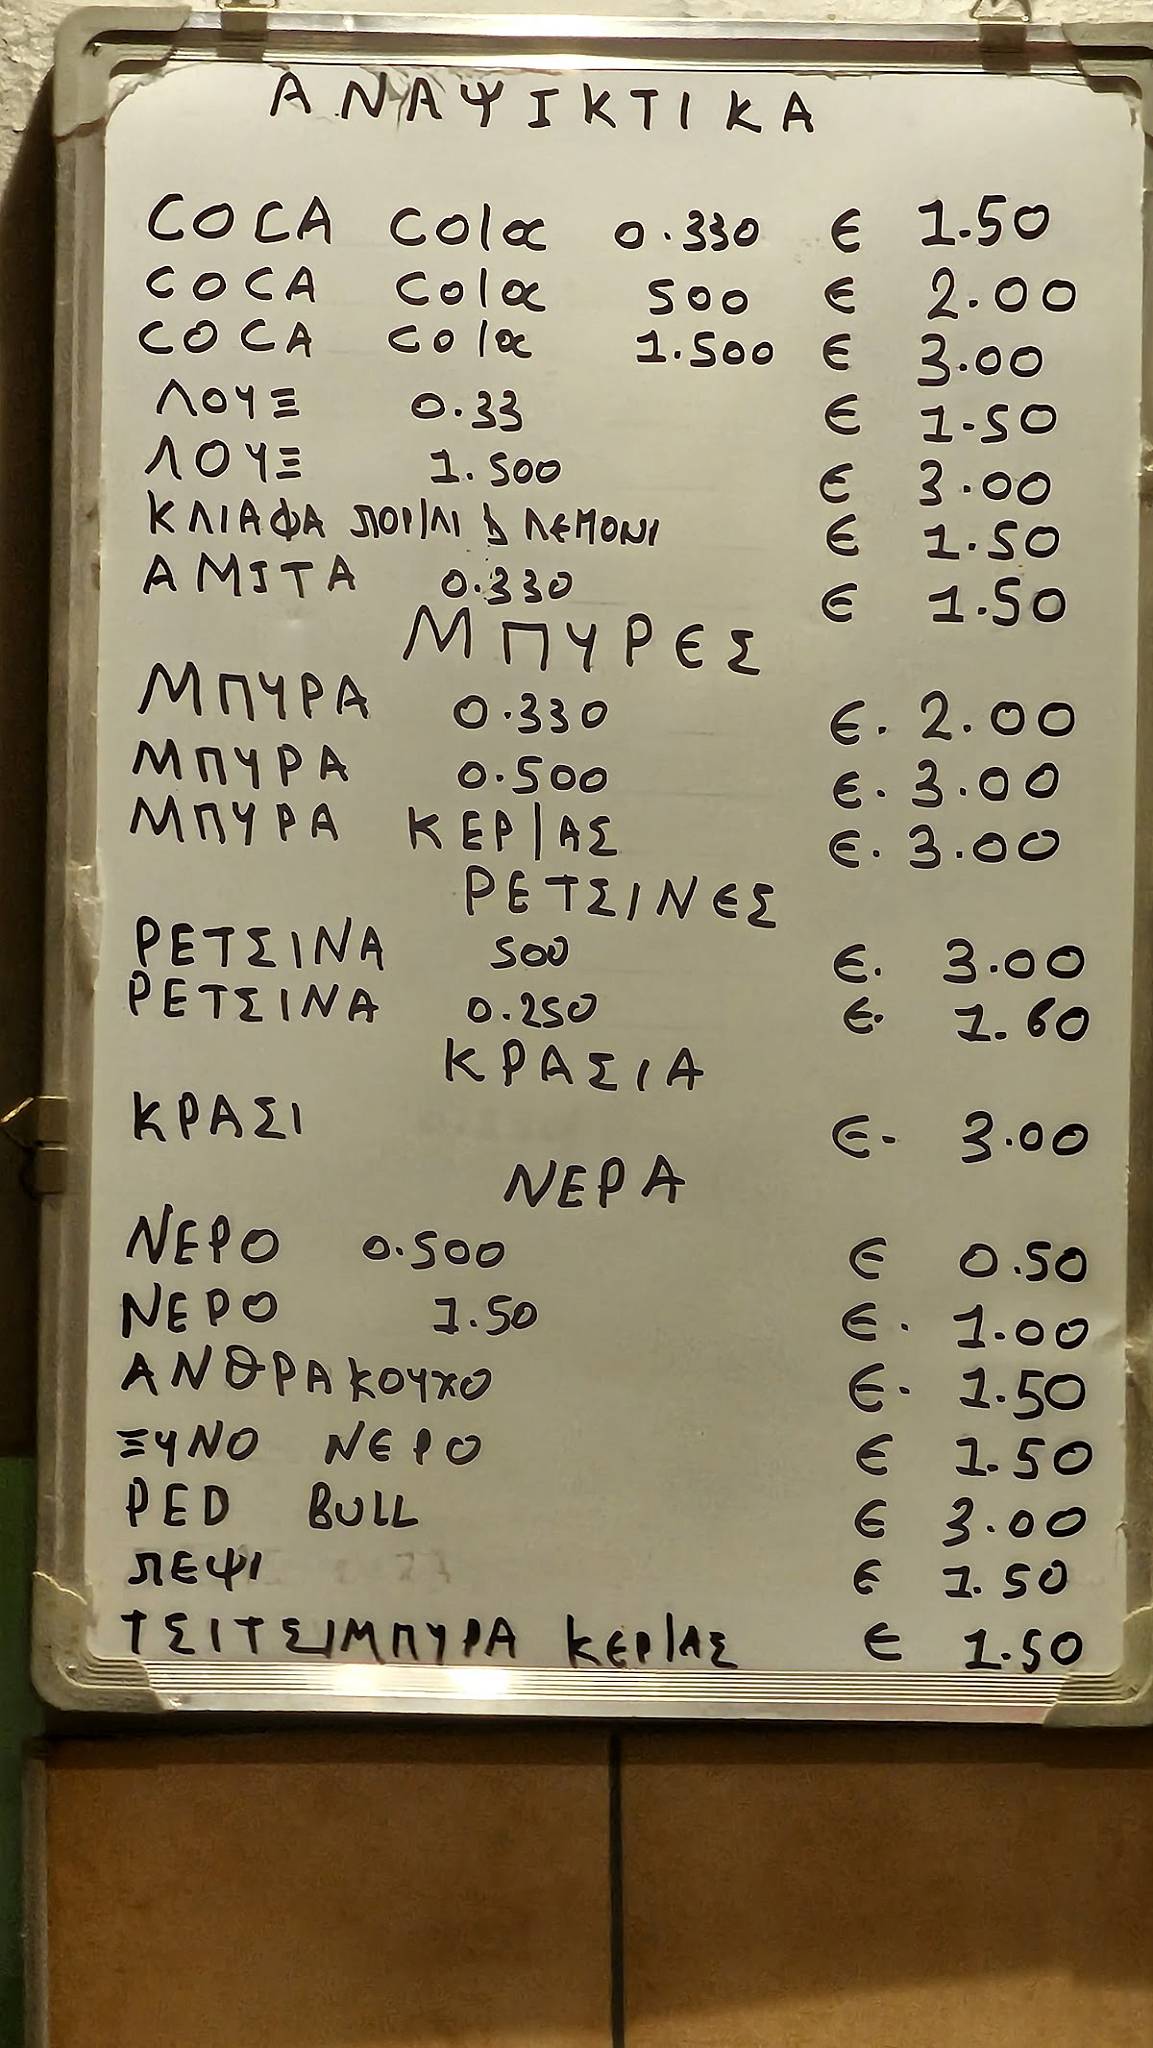 ΑΝΑΨΙΚΤΙΚΑ
COCA Cola 0.330 € 1.50
COCA Cola 500 € 2.00
COCA Cola 1.500 € 3.00
ΛΟΥΞ 0.33 € 1.50
ΛΟΥΞ 1.500 € 3.00
ΚΛΙΑΦΑ ΠΟΡ/ΛΙ ΛΕΜΟΝΙ € 1.50
ΑΜΙΤΑ 0.330 € 1.50
ΜΠΥΡΕΣ
ΜΠΥΡΑ 0.330 €. 2.00
ΜΠΥΡΑ 0.500 €. 3.00
ΜΠΥΡΑ ΚΕΡ/ΑΣ €. 3.00
ΡΕΤΣΙΝΕΣ
ΡΕΤΣΙΝΑ 500 €. 3.00
ΡΕΤΣΙΝΑ 0.250 €. 1.60
ΚΡΑΣΙΑ
ΚΡΑΣΙ €. 3.00
ΝΕΡΑ
ΝΕΡΟ 0.500 € 0.50
ΝΕΡΟ 1.50 €. 1.00
ΑΝΘΡΑΚΟΥΧΟ €. 1.50
ΞΥΝΟ ΝΕΡΟ € 1.50
ΡED BULL € 3.00
ΠΕΨΙ € 1.50
ΤΣΙΤΣΙΜΠΥΡΑ ΚΕΡ/ΑΣ € 1.50